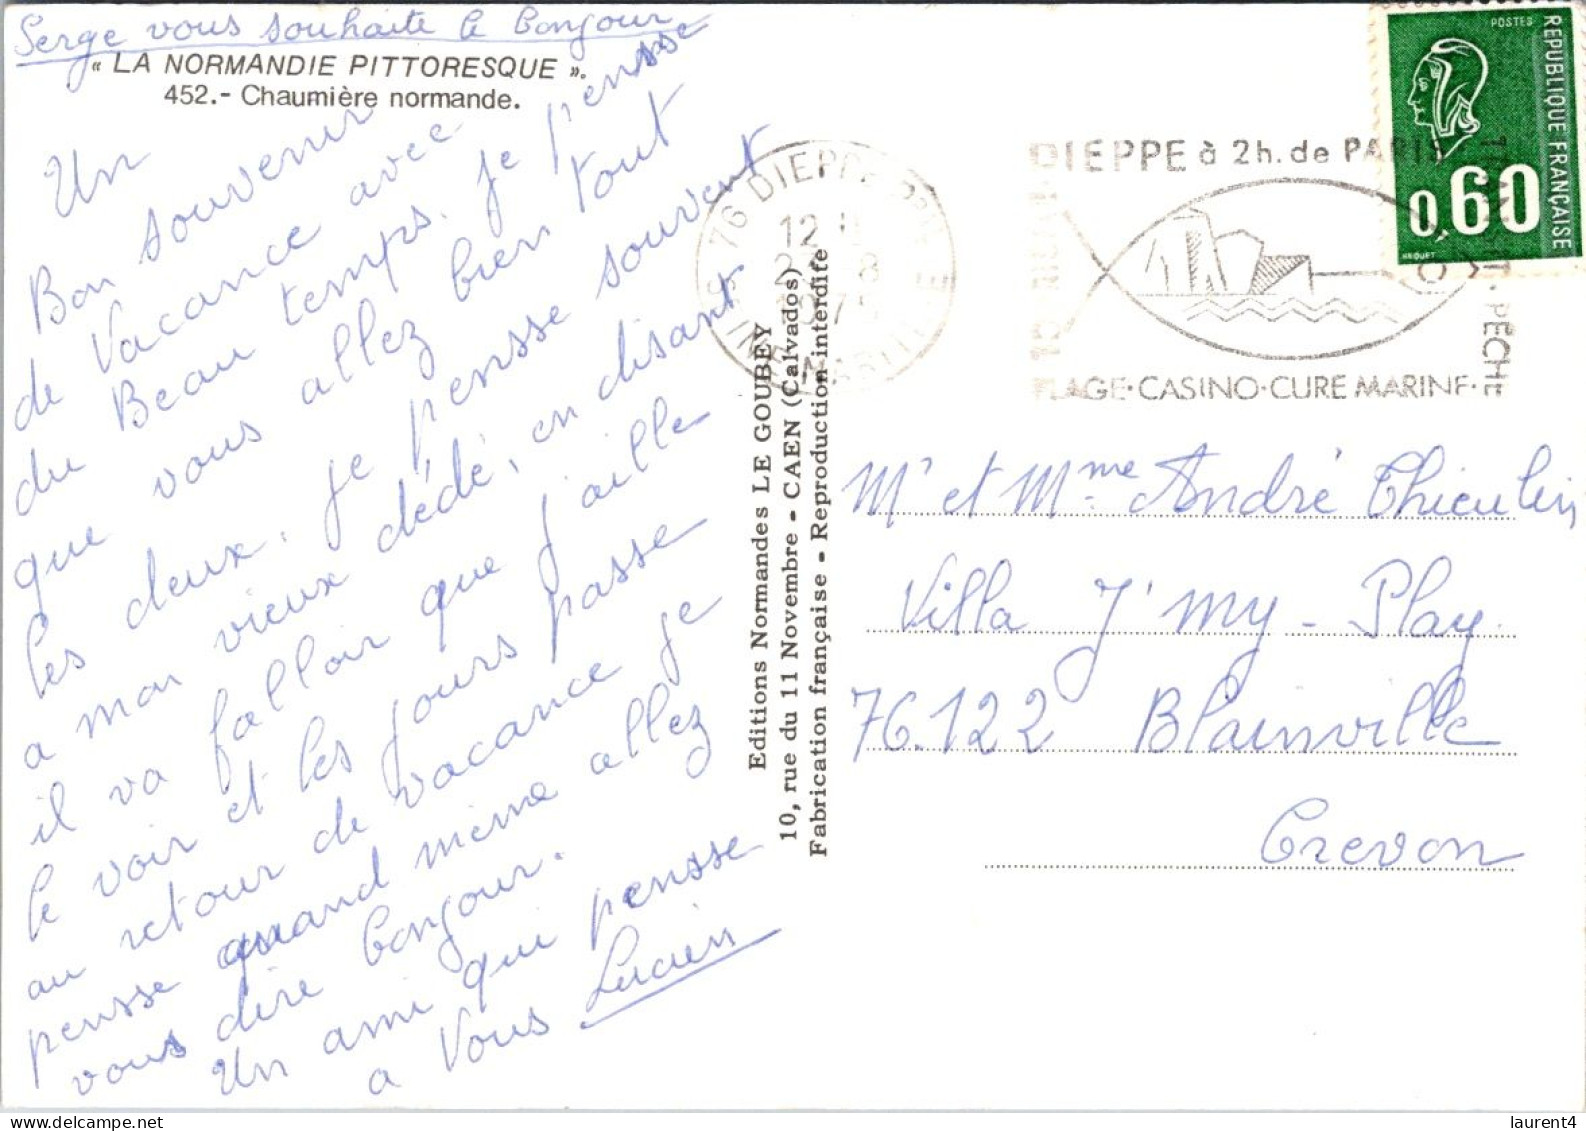 Serge vous souhaite le bonjour
« LA NORMANDIE PITTORESQUE ».
452.- Chaumière normande.
Un
Bon souvenir
de Vacance avec
du Beau temps. je pensse
que vous allez bien tout
les deux. je pensse souvent
a mon vieux dédé, en disant
il va falloir que j'aille
le voir et les jours passe
au retour de vacance je
pensse quand même allez
vous dire bonjour.
Un ami qui pensse
a Vous Lucien
Editions Normandes LE GOUBEY
10, rue du 11 Novembre - CAEN (Calvados)
Fabrication française - Reproduction interdite
76 DIEPPE
12 H
8
1975
SEINE MARITIME
DIEPPE à 2h. de PARIS
PLAGE·CASINO·CURE MARINE·
PÊCHE
POSTES
REPUBLIQUE FRANÇAISE
0,60
BEQUET
Mr et Mme André Thieulin
Villa J'my-Play
76.122 Blainville
Crevon
laurent4